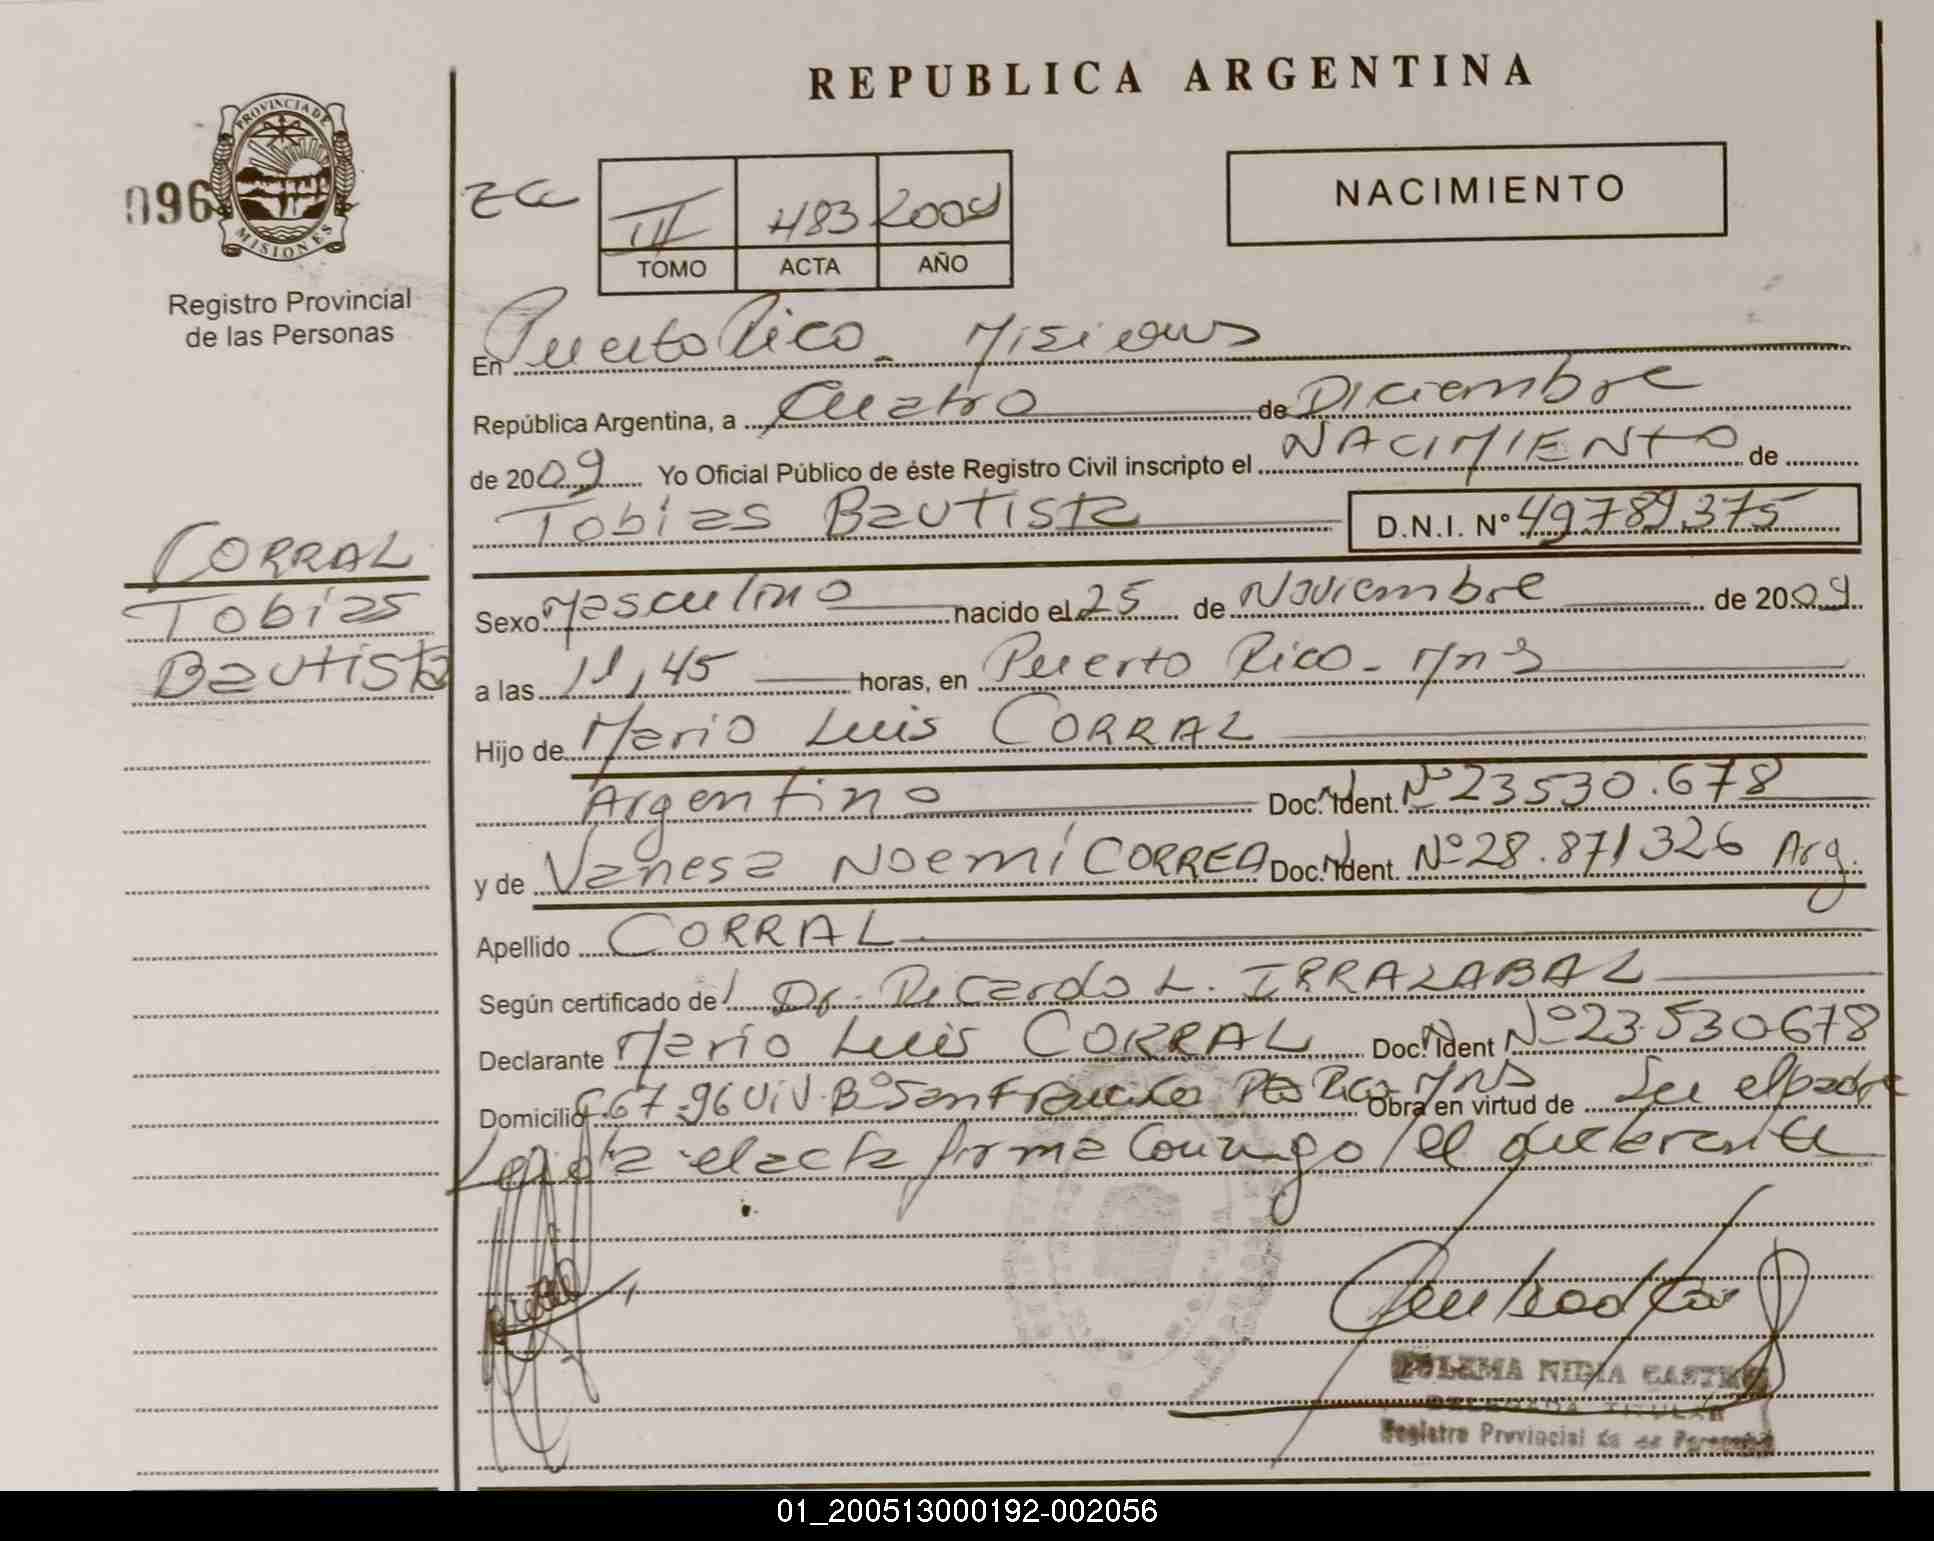 REPUBLICA ARGENTINA
PROVINCIA DE
MISIONES
096
Registro Provincial
de las Personas
III 483 2009
TOMO ACTA AÑO
NACIMIENTO
En Puerto Rico - Misiones
República Argentina, a Cuatro de Diciembre
de 2009 Yo Oficial Público de éste Registro Civil inscripto el NACIMIENTO de
Tobias Bautista D.N.I. N° 49.789.375
CORRAL
Tobias
Bautista
Sexo Masculino nacido el 25 de Noviembre de 2009
a las 11,45 horas, en Puerto Rico - Mns
Hijo de Mario Luis CORRAL
Argentino Doc. Ident. N° 23530.678
y de Vanesa Noemí CORREA Doc. Ident. N° 28.871326 Arg.
Apellido CORRAL
Según certificado del Dr. Ricardo L. IRRAZABAL
Declarante Mario Luis CORRAL Doc. Ident N° 23.530678
Domicilio 67-96 Viv. B° San Francisco Pto Rico Mns Obra en virtud de Ser el padre
Leida el acta firma conmigo el declarante
ZULEMA NIDIA CASTRO
DELEGADA TITULAR
Registro Provincial de las Personas
01_200513000192-002056